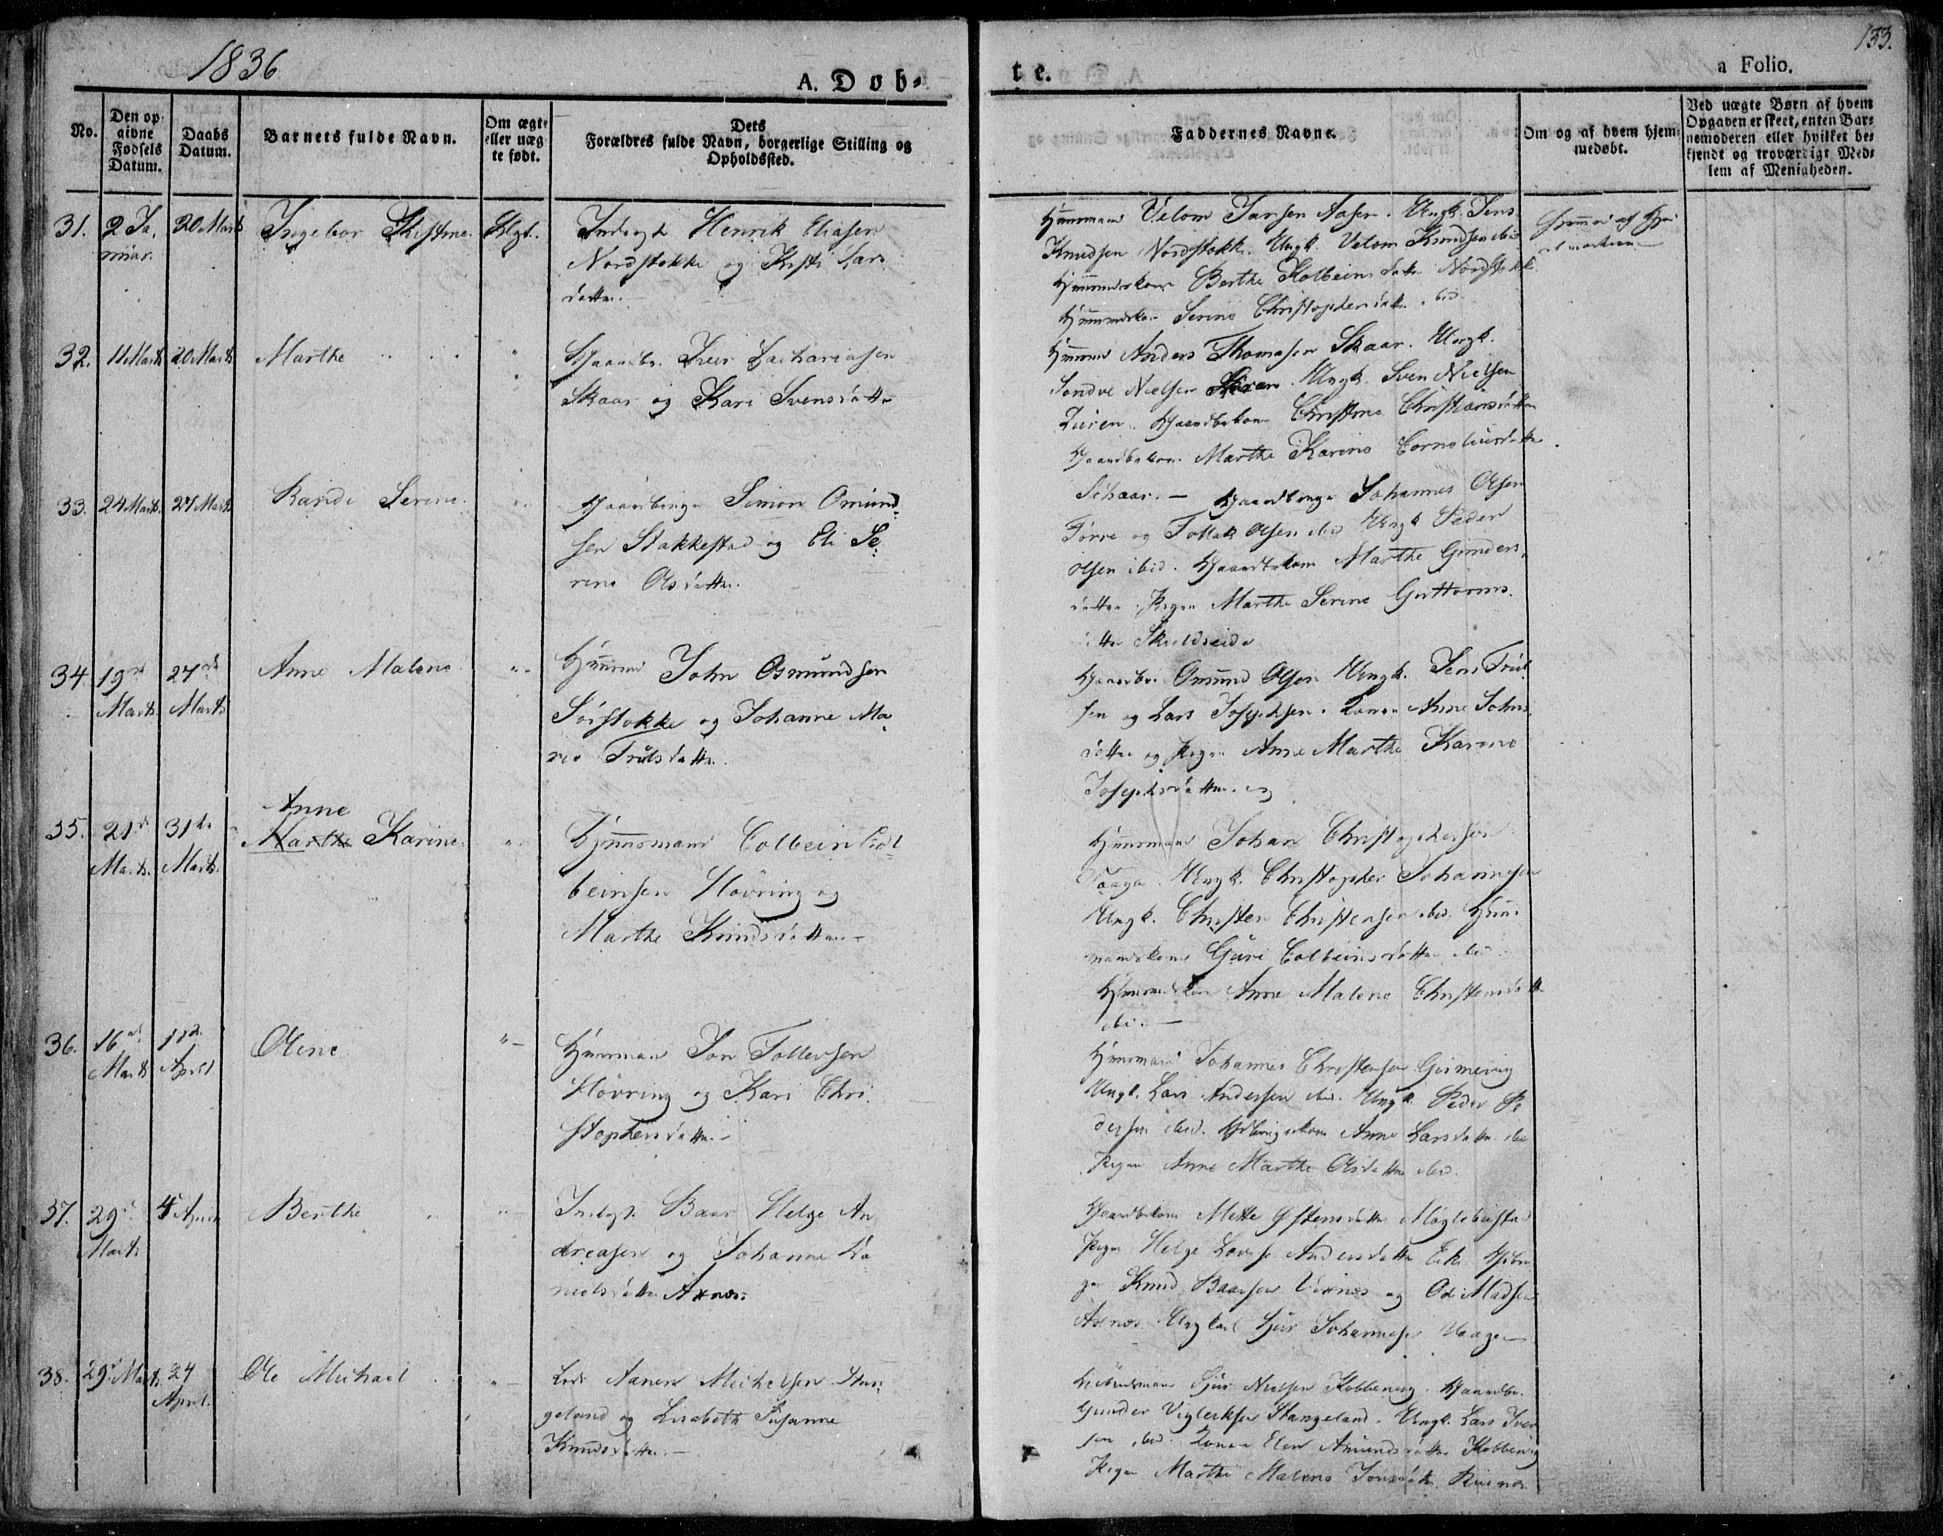 1836
133.
A. Døb-
te.
a Folio.
No.
Den op-
givne
Fødsels
Datum.
Daabs
Datum.
Barnets fulde Navn.
Om ægte
eller uæg
te født.
Dets
Forældres fulde Navn, borgerlige Stilling og
Opholdssted.
Faddernes Navne.
Om og af hvem hjem-
medøbt.
Ved uægte Børn af hvem
Opgaven er skeet, enten Bar-
nemoderen eller hvilket be-
kjendt og troværdigt Med-
lem af Menigheden.
31.
2 Ja
nuar.
20 Marts
Ingebor Kistine
Ægt.
Henrik Eliasen
Nordstokke og Kisti Lars
datter.
Huusmand Velom Jansen Aasen. Ungk. Jens
Knudsen Nordstokk. Ungk. Velom Knudsen ibid
Berthe Kolbeins datter Nordstokk
Serine Christophersdatt. ibid
32.
11 Marts
20 Marts
Marthe
"
Gaardbr. Iver Zachariasen
Skaar og Kari Svensdatter
Anders Thomasen Skaar. Ungk.
Sondve Nielsen. Ungk. Sven Nielsen
Christine Christiansdatter
Marthe Karine Corneliusdatter
Schaar. –
33.
24 Marts
27 Marts
Rande Serine
Gaardbruger Simon Omund-
sen Stakkestad og Eli Se-
rine Olsdatter.
Gaardbruger Johannes Olsen
Førre og Tollak Olsen ibid Ungk Peder
Olsen ibid. Gaardbrkone Marthe Gunders
datter. Pigen Marthe Serine Guttorms
datter Skeldseide
34.
19de
Marts
27de
Marts
Anne Malene
" "
Huusmand John Osmundsen
Sørstokke og Johanne Ma
rie Trulsdatter.
Gaardbr. Omund Olsen Ungk. Jens Trul
sen og Lars Josephsen. Konen Anne Johns
datter og Pigen Anne Marthe Karine
Josephsdatter.
35.
21de
Marts
31te
Marts
Anne
Marthe Karine
Huusmand Colbein Col-
beinsen Høvring og
Marthe Knudsdatter –
Huusmand Johan Christophersen
Vaage. Ungk. Christopher Johannesen
Ungk. Christen Christensen ibid. Huus
mandskone Guri Colbeinsdatter ibid
Anne Malene Christensdatter
ibid. –
36.
16de
Marts
1ste
April
Oline
" –
Huusmand Jon Tollevsen
Høvring og Kari Chri
stophersdatter –
Huusmand Johannes Christensen Grimering
Ungk. Lars Andersen ibid. Ungk. Peder Pe
dersen ibid. Anne Larsdatter ibid
Pigen Anne Marthe Olsdatter ibid.
37.
29de
Marts
4 April
Berthe
Baar Helge An
dreasen og Johanne Da
nielsdatter Axnes.
Gaardbrkone Mette Ostensdatter Møglebustad
Pigen Helge Lovise Andersdatter Eike
Knud Baarsen Vernes og Ole Madsen
Axnes Ungkarl Sjur Johannesen Vaage –
38.
29de Marts
24
April.
Ole Michael
Aanen Michelsen Stan
geland og Lisebeth Susanne
Knudsdatter. –
Sjur Nielsen Kobbeng. Gaardbr.
Gunder Viglersen Stangeland. Ungk. Lars Iver
sen ibid. Konen Elen Amundsdatter Kobbeng
Pigen Marthe Malene Jonsdatter